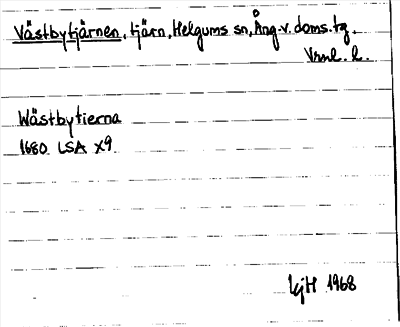 Västbytjärnen, tjärn, Helgums sn, Ång. v. doms. tg.
Vrml. l.
Wästbytierna
1680 LSA X9
LjH 1968